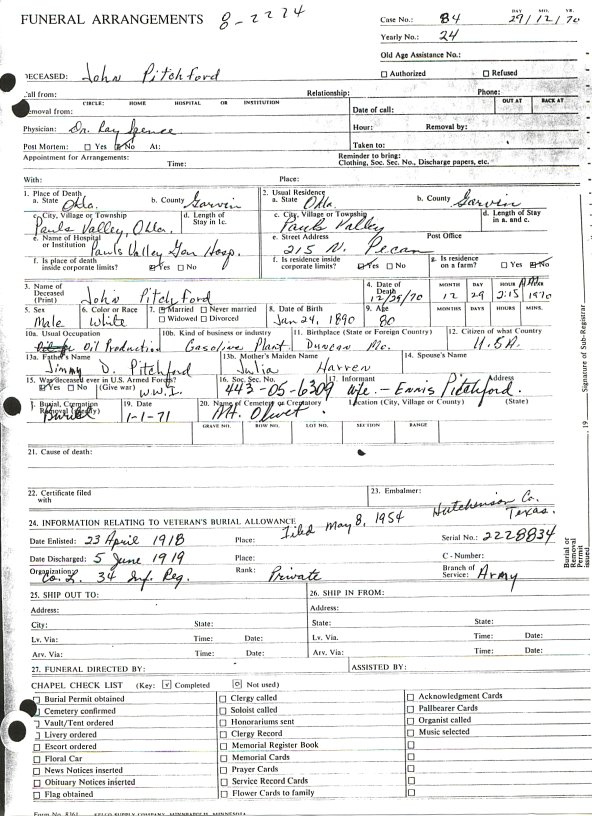 FUNERAL ARRANGEMENTS 8-2274
DAY MO. YR.
Case No.: 84 29/12/70
Yearly No.: 24
Old Age Assistance No.:
DECEASED: John Pitchford
☐ Authorized ☐ Refused
Call from: Relationship: Phone:
CIRCLE: HOME HOSPITAL OR INSTITUTION
OUT AT BACK AT
Removal from: Date of call:
Physician: Dr. Ray Spence Hour: Removal by:
Post Mortem: ☐ Yes ☑ No At: Taken to:
Appointment for Arrangements: Time:
Reminder to bring:
Clothing, Soc. Sec. No., Discharge papers, etc.
With: Place:
1. Place of Death
a. State Okla. b. County Garvin
2. Usual Residence
a. State Okla. b. County Garvin
c. City, Village or Township Pauls Valley, Okla. d. Length of Stay in 1c.
c. City, Village or Township Pauls Valley d. Length of Stay in a. and c.
e. Name of Hospital or Institution Pauls Valley Gen Hosp.
e. Street Address 215 N. Pecan Post Office
f. Is place of death inside corporate limits? ☑ Yes ☐ No
f. Is residence inside corporate limits? ☑ Yes ☐ No
g. Is residence on a farm? ☐ Yes ☑ No
3. Name of Deceased (Print) John Pitchford
4. Date of Death 12/29/70
MONTH DAY HOUR
12 29 2:15 AM 1970
5. Sex Male
6. Color or Race White
7. ☑ Married ☐ Never married
☐ Widowed ☐ Divorced
8. Date of Birth Jan 24, 1890
9. Age 80
MONTHS DAYS HOURS MINS.
10a. Usual Occupation Oil Production
10b. Kind of business or industry Gasoline Plant
11. Birthplace (State or Foreign Country) Duncan Mo.
12. Citizen of what Country U.S.A.
13a. Father's Name Jimmy D. Pitchford
13b. Mother's Maiden Name Julia Harren
14. Spouse's Name
15. Was deceased ever in U.S. Armed Forces?
☑ Yes ☐ No (Give war) W.W.I.
16. Soc. Sec. No. 443-05-6309
17. Informant Wfe. - Ennis Pitchford. Address
Burial, Cremation Removal (Specify) Burial
19. Date 1-1-71
20. Name of Cemetery or Crematory Mt. Olivet
Location (City, Village or County) (State)
GRAVE NO. ROW NO. LOT NO. SECTION RANGE
21. Cause of death:
22. Certificate filed with
23. Embalmer:
24. INFORMATION RELATING TO VETERAN'S BURIAL ALLOWANCE
Filed May 8, 1954 Hutchenson Co. Texas.
Date Enlisted: 23 April 1918 Place: Serial No.: 2228834
Date Discharged: 5 June 1919 Place: C - Number:
Organization: Co. L. 34 Inf. Reg. Rank: Private Branch of Service: Army
25. SHIP OUT TO:
Address:
City: State:
Lv. Via: Time: Date:
Arv. Via: Time: Date:
26. SHIP IN FROM:
Address:
State: State:
Lv. Via: Time: Date:
Arv. Via: Time: Date:
27. FUNERAL DIRECTED BY: ASSISTED BY:
CHAPEL CHECK LIST (Key: ☑ Completed ☐ Not used)
☐ Burial Permit obtained
☐ Cemetery confirmed
☐ Vault/Tent ordered
☐ Livery ordered
☐ Escort ordered
☐ Floral Car
☐ News Notices inserted
☐ Obituary Notices inserted
☐ Flag obtained
☐ Clergy called
☐ Soloist called
☐ Honorariums sent
☐ Clergy Record
☐ Memorial Register Book
☐ Memorial Cards
☐ Prayer Cards
☐ Service Record Cards
☐ Flower Cards to family
☐ Acknowledgment Cards
☐ Pallbearer Cards
☐ Organist called
☐ Music selected
Form No. 8361 SUPPLY COMPANY, MINNEAPOLIS, MINNESOTA
Burial or Removal Permit issued , 19 Signature of Sub-Registrar